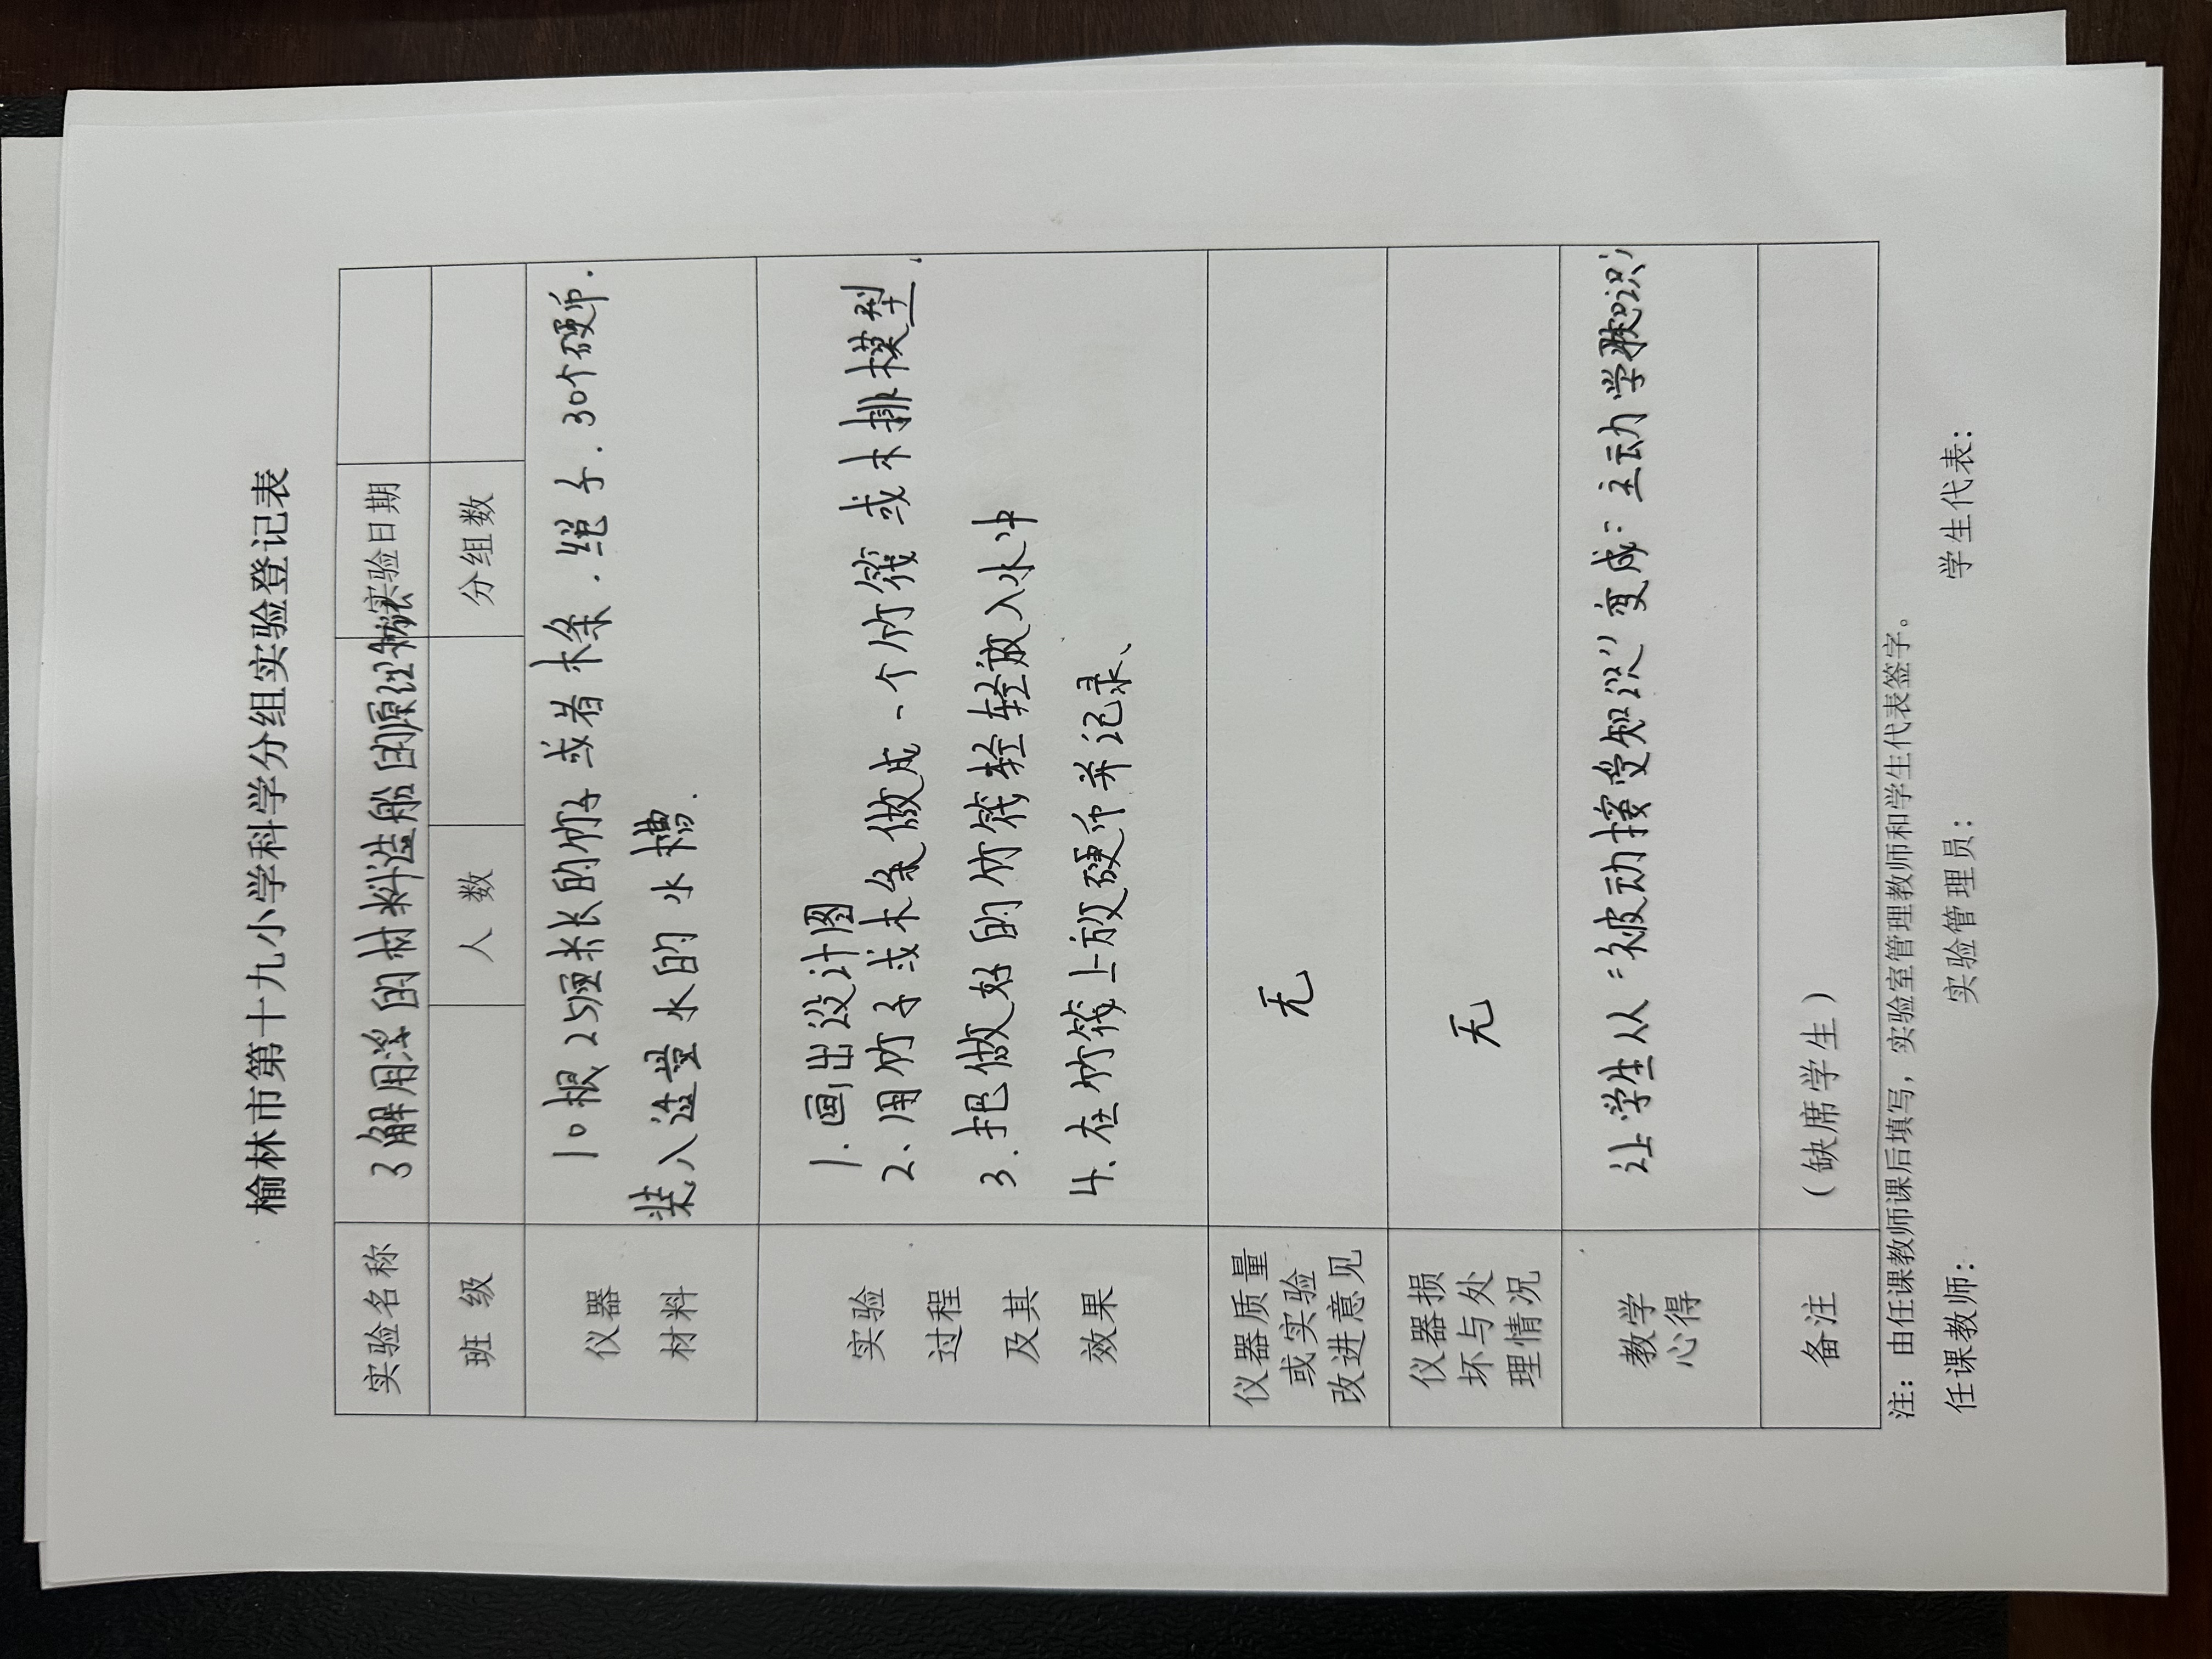 榆林市第十九小学科学分组实验登记表
实验名称 了解用浮的材料造船的原理和 实验日期
班 级 人 数 分组数
仪器
材料
10根25厘米长的竹子或者木条.绳子.30个硬币.
装入适量水的水槽.
实验
过程
及其
效果
1.画出设计图
2、用竹子或木条做成一个竹筏或木排模型.
3.把做好的竹筏轻轻放入水中
4.在竹筏上放硬币并记录、
仪器质量
或实验
改进意见
无
仪器损
坏与处
理情况
无
教学
心得
让学生从“被动接受知识”变成“主动学
备注 (缺席学生)
注：由任课教师课后填写，实验室管理教师和学生代表签字。
任课教师： 实验管理员： 学生代表：